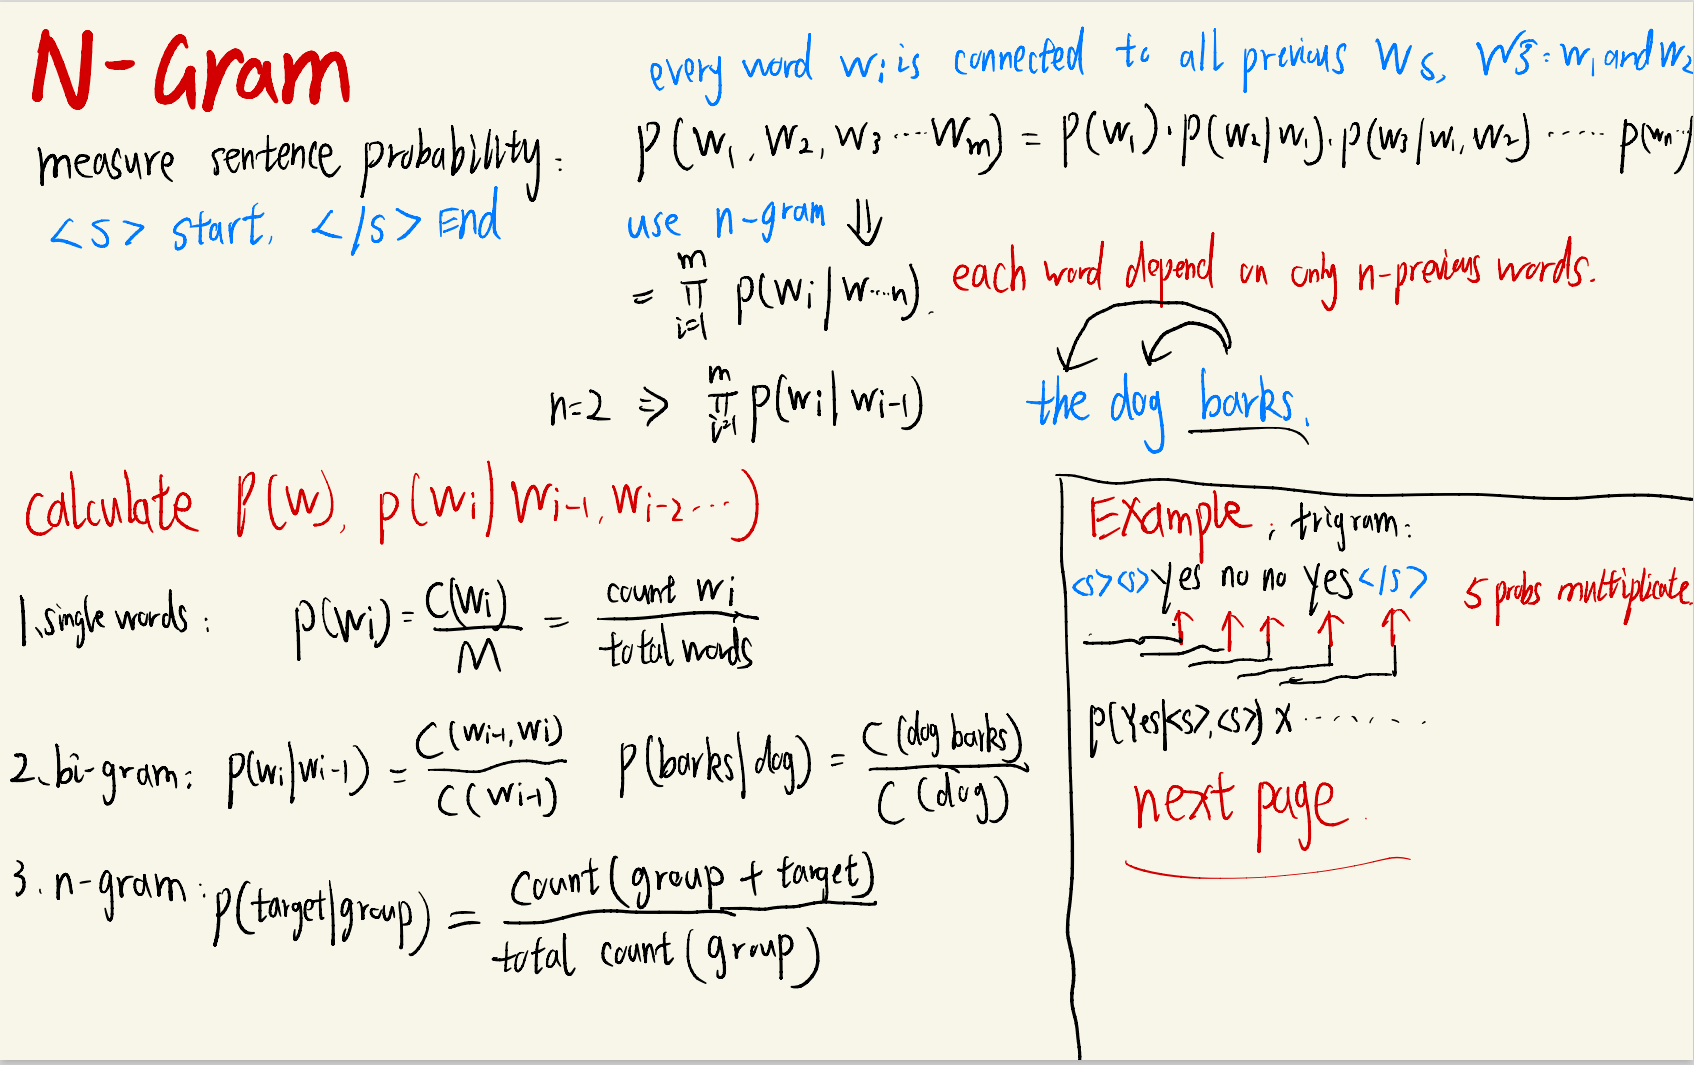 N-Gram
every word wi is connected to all previous Ws, W3: w1 and w2
measure sentence probability:
P(W1, W2, W3 ····Wm) = P(W1)·P(W2|W1)·P(W3|W1, W2) ······ P(Wn··)
<s> start, </s> End
use n-gram ⇓
= ∏ i=1 m P(Wi|W···n).
each word depend on only n-previous words.
n=2 ⇒ ∏ i=1 m P(Wi|Wi-1)
the dog barks.
Calculate P(W), P(Wi|Wi-1, Wi-2 ···)
1. single words: P(Wi) = C(Wi) / M = count wi / total words
2. bi-gram: P(Wi|Wi-1) = C(Wi-1, Wi) / C(Wi-1) P(barks|dog) = C(dog barks) / C(dog)
3. n-gram: P(target|group) = Count(group + target) / total count(group)
Example: trigram:
<s><s>Yes no no Yes</s> 5 probs multiplicate
P(Yes|<s>,<s>) x ········
next page.